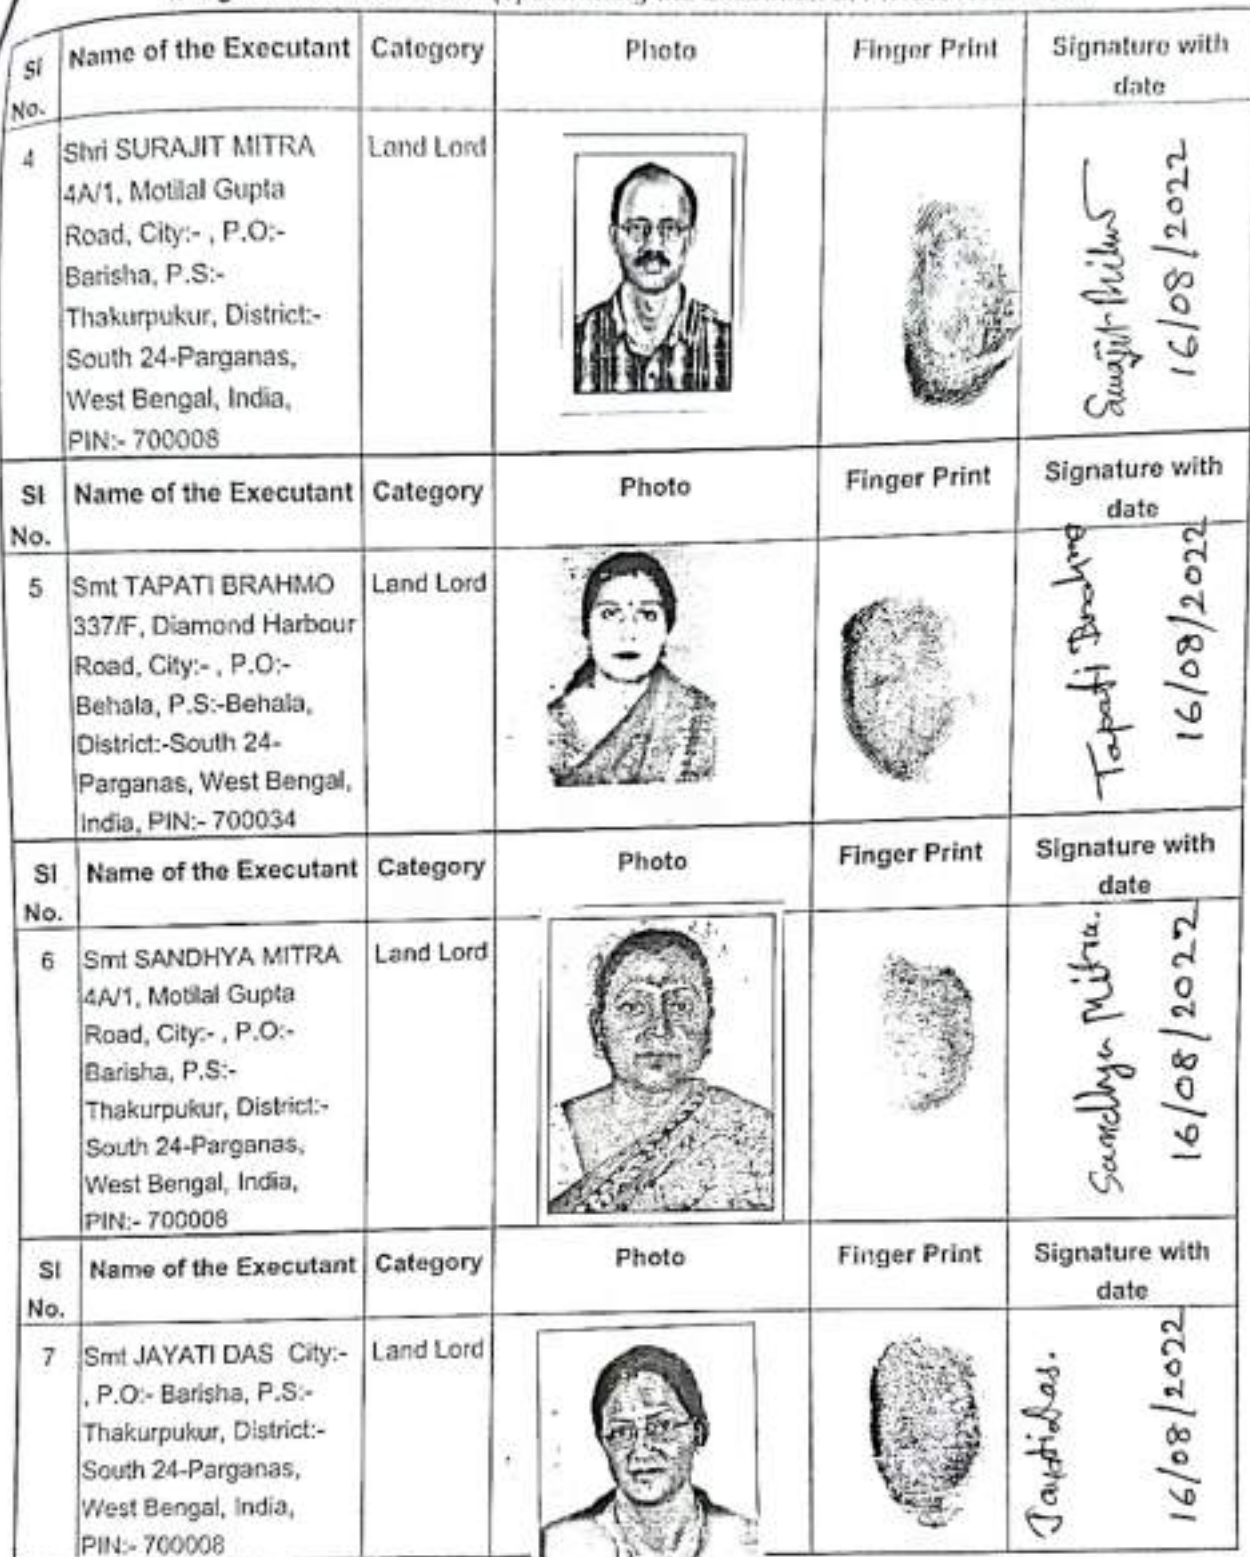 Sl No. Name of the Executant Category Photo Finger Print Signature with date
4 Shri SURAJIT MITRA Land Lord
4A/1, Motilal Gupta
Road, City:- , P.O:-
Barisha, P.S:-
Thakurpukur, District:-
South 24-Parganas,
West Bengal, India,
PIN:- 700008
Surajit Mitra
16/08/2022
Sl No. Name of the Executant Category Photo Finger Print Signature with date
5 Smt TAPATI BRAHMO Land Lord
337/F, Diamond Harbour
Road, City:- , P.O:-
Behala, P.S:-Behala,
District:-South 24-
Parganas, West Bengal,
India, PIN:- 700034
Tapati Brahmo
16/08/2022
Sl No. Name of the Executant Category Photo Finger Print Signature with date
6 Smt SANDHYA MITRA Land Lord
4A/1, Motilal Gupta
Road, City:- , P.O:-
Barisha, P.S:-
Thakurpukur, District:-
South 24-Parganas,
West Bengal, India,
PIN:- 700008
Sandhya Mitra.
16/08/2022
Sl No. Name of the Executant Category Photo Finger Print Signature with date
7 Smt JAYATI DAS City:- Land Lord
, P.O:- Barisha, P.S:-
Thakurpukur, District:-
South 24-Parganas,
West Bengal, India,
PIN:- 700008
Jayati Das.
16/08/2022